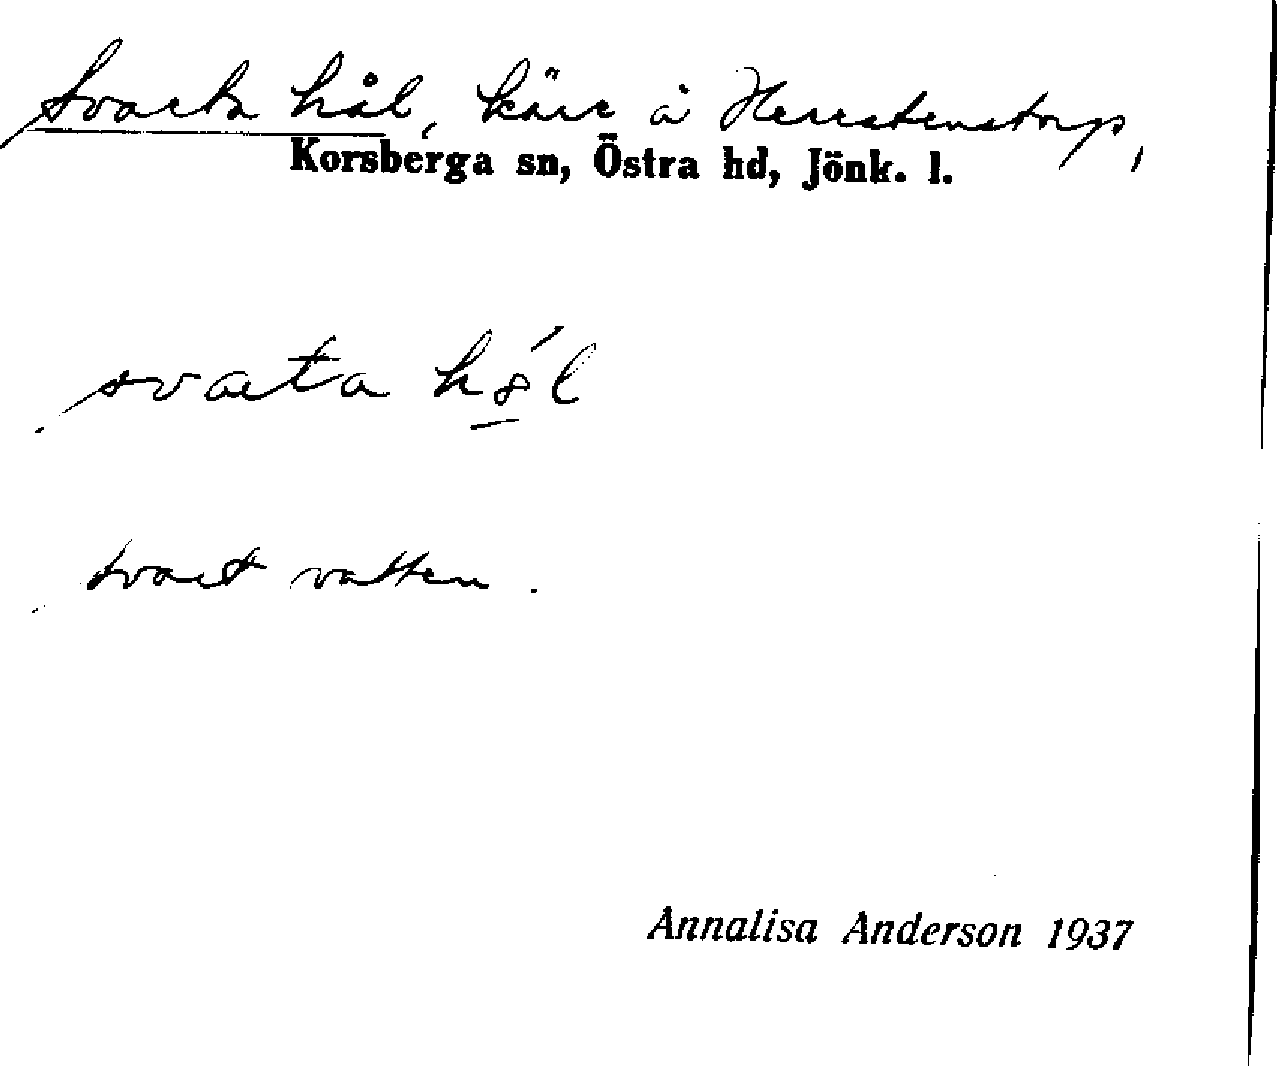 Svarta hål, kärr å Herrstenstorp,
Korsberga sn, Östra hd, Jönk. l.
svarta hó̲l
svart vatten.
Annalisa Anderson 1937